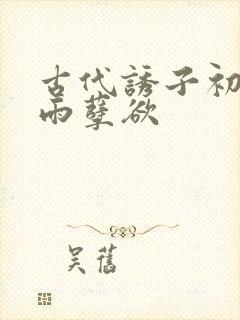 古代誘子初
雨孽欲
吴舊